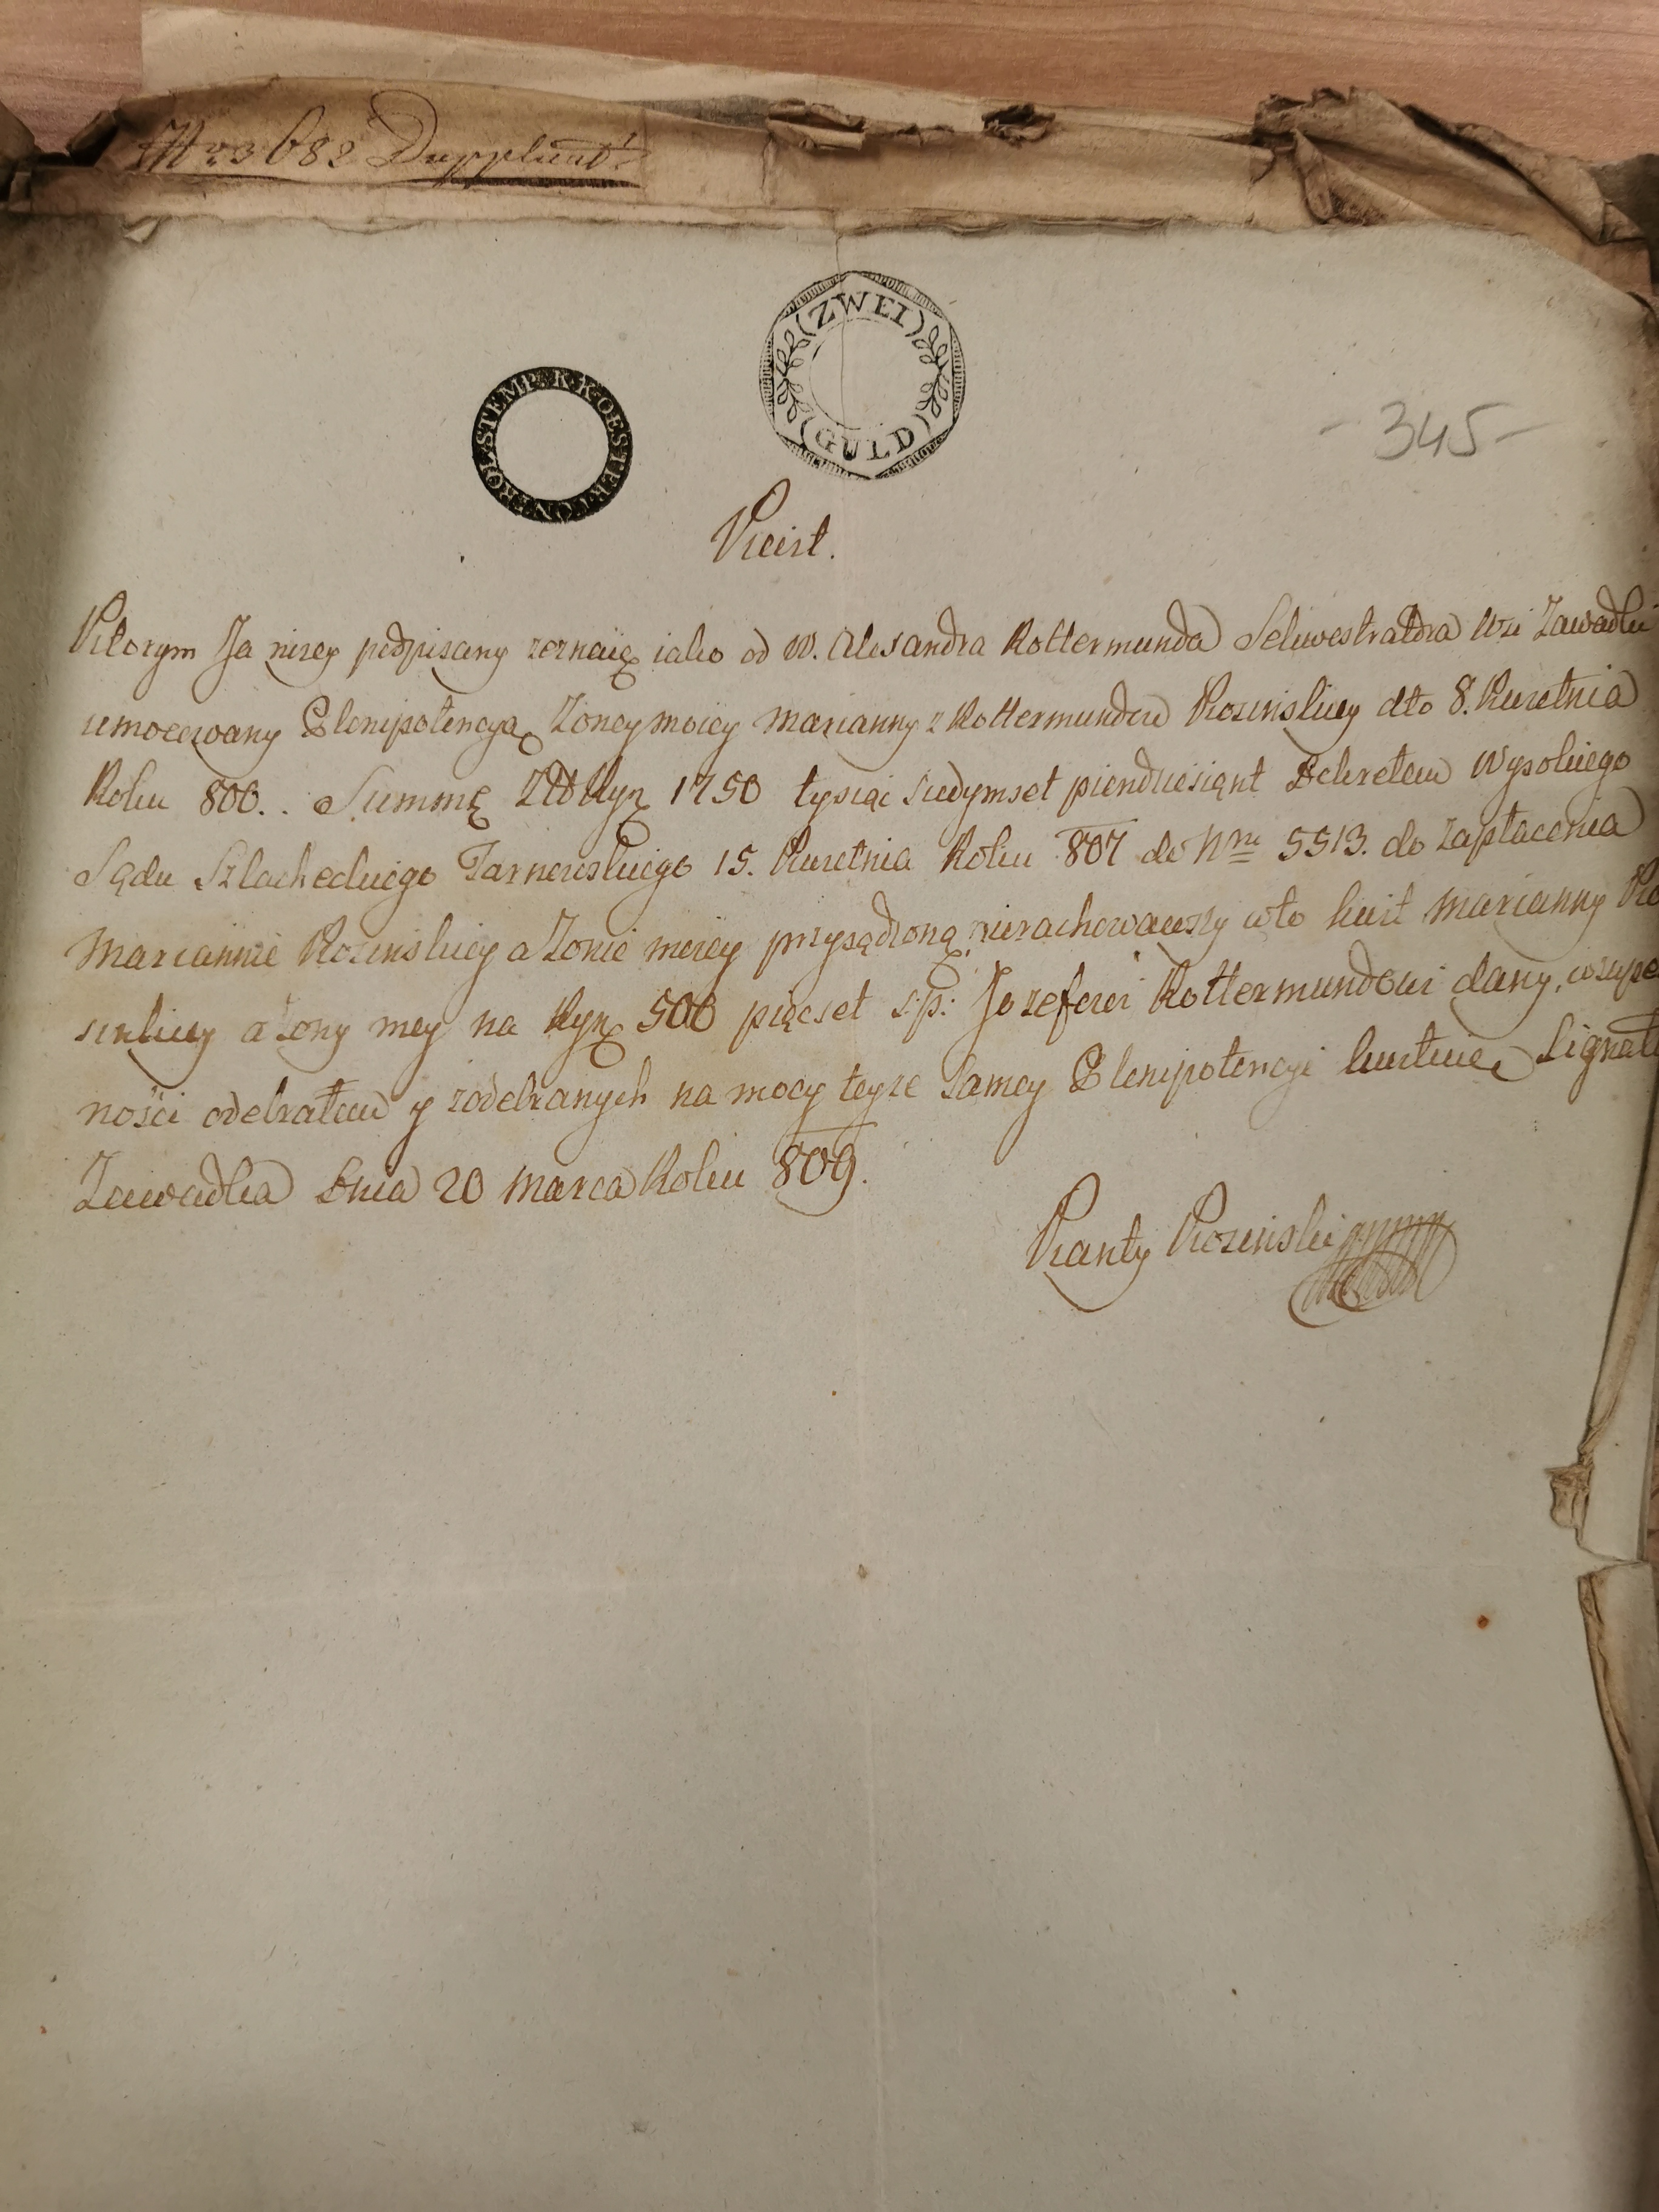 Nro 3682 Dupplicat
ZWEI
GULD
K. K. OESTER. CONTROL STEMP
- 345 -
Kwit.
Ktorym Ja nizey podpisany zeznaię iako od W. Alexandra Kottermunda Sekwestratora Wsi Zawadki
umocowany Plenipotencyą Zony moiey Marianny z Kottermundow Kozinskiey dto 8. Kwietnia
Roku 806.. Summę Złł Ryn 1750 tysiąc siedymset piendziesiąnt Dekretem Wysokiego
Sądu Szlacheckiego Tarnowskiego 15. Kwietnia Roku 807 do Nru 5513. do zapłacenia
Mariannie Kozinskiey a Zonie moiey przysądzoną wrachowawszy w to kwit Marianny Ko
sinkiey a Zony mey na Ryn 500 pięcset s.p: Jozefowi Kottermundowi dany, w zupeł
ności odebrałem y z odebranych na mocy teyze samey Plenipotencyi kwituię Signat
Zawadka Dnia 20 Marca Roku 809.
Kanty Kozinski